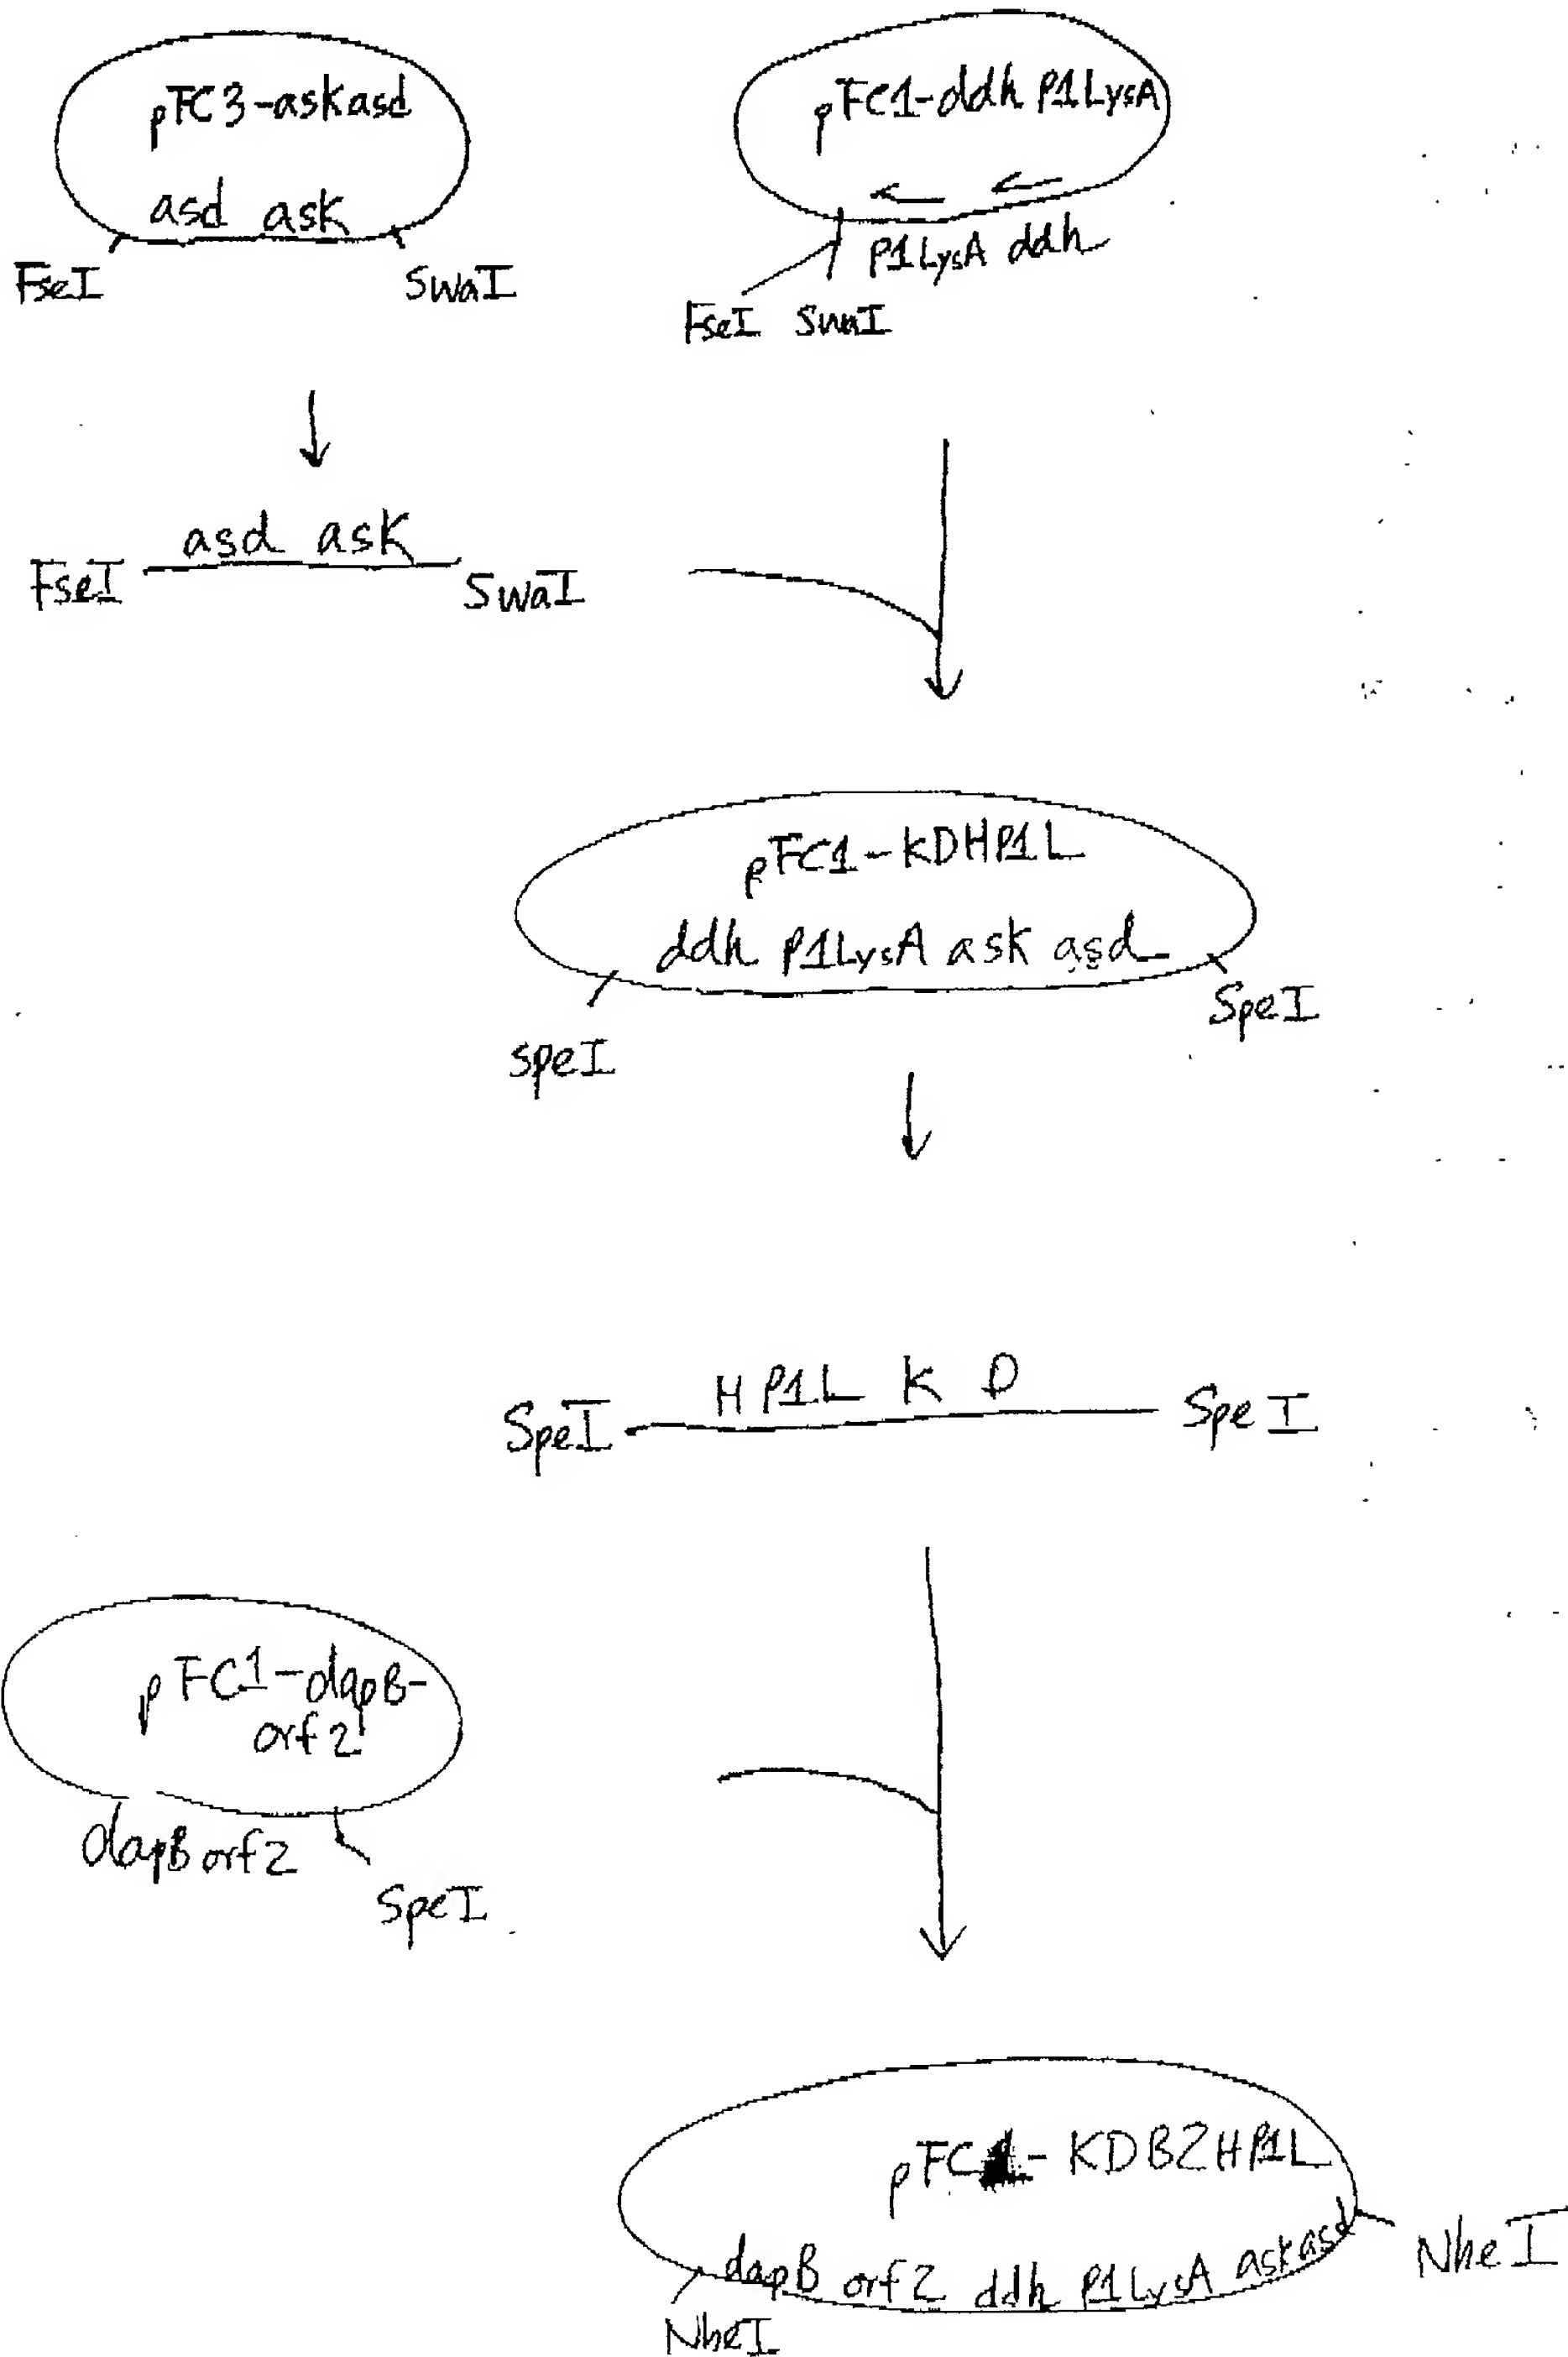 pFC3-askasd
asd ask
FseI
SwaI
pFC1-ddh P1LysA
P1LysA ddh
FseI SwaI
asd ask
FseI
SwaI
pFC1-KDHP1L
ddh P1LysA ask asd
speI
SpeI
H P1L K D
SpeI
SpeI
pFC1-dapB-
orf2
dapB orf2
SpeI
pFC1-KDB2HP1L
dapB orf2 ddh P1LysA ask asd
NheI
NheI